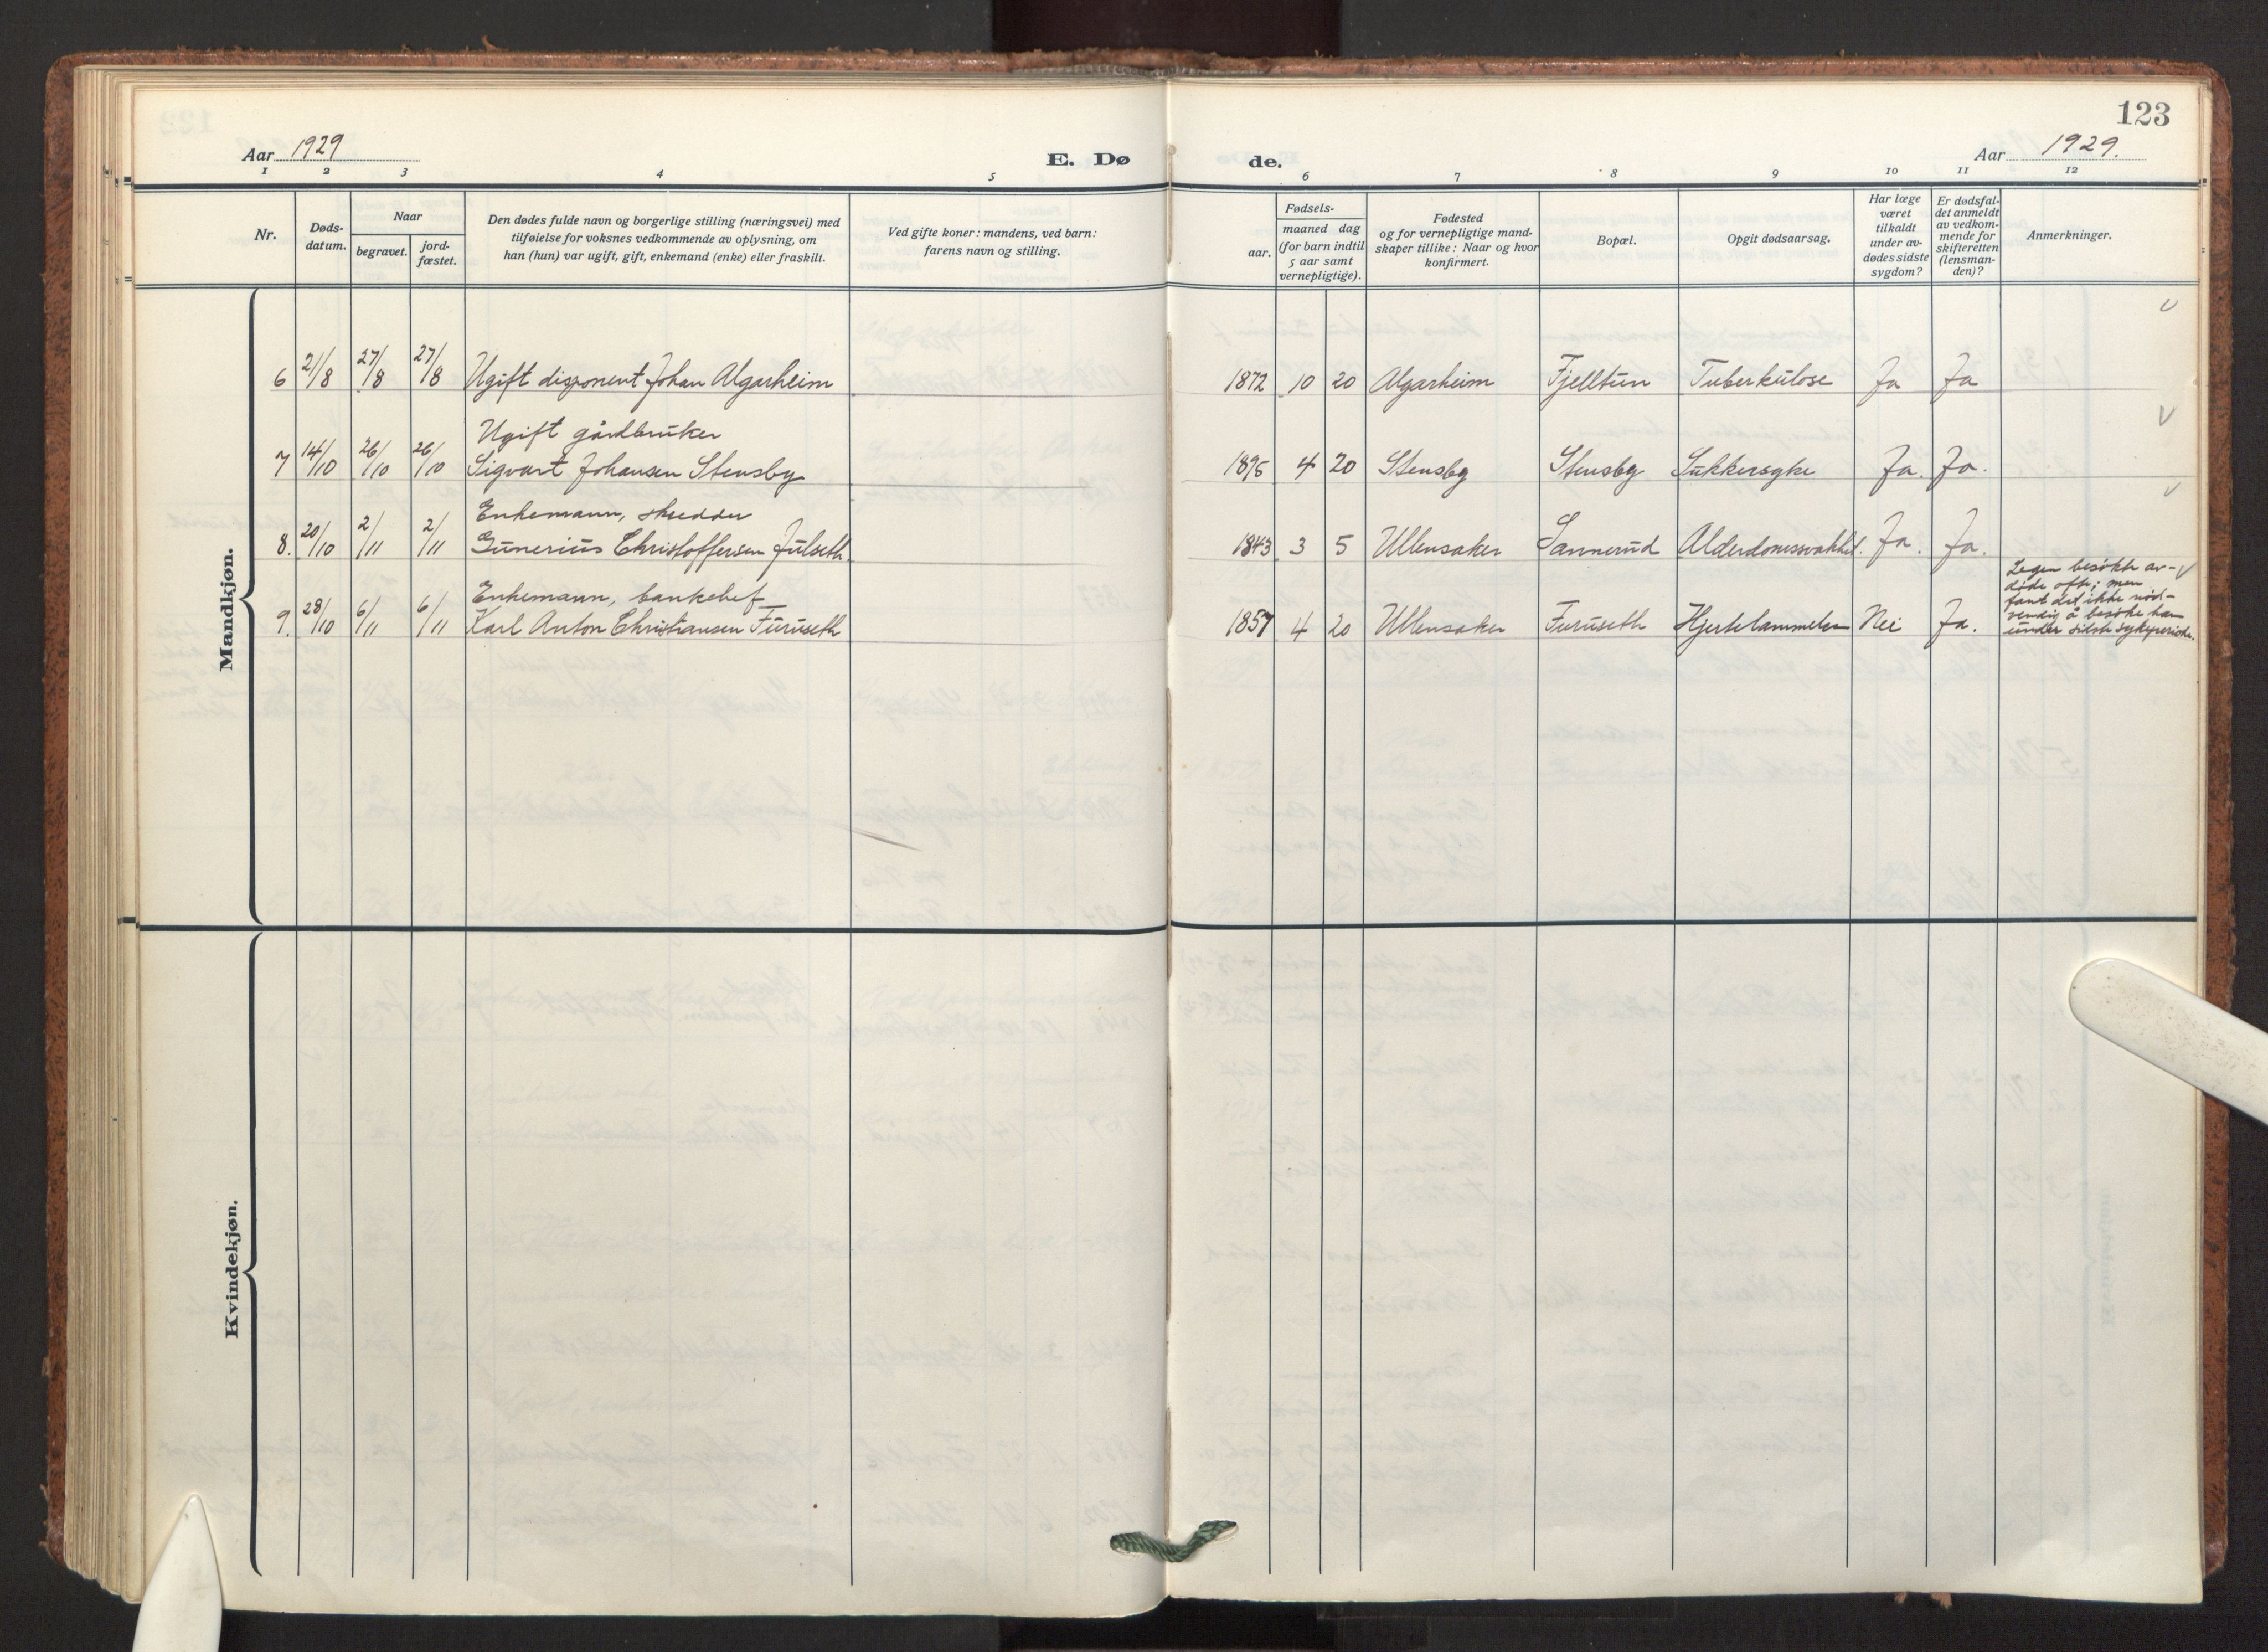 123
Aar 1929
E. Dø
de.
Aar 1929.
1 2 3 4 5 6 7 8 9 10 11 12
Nr.
Døds-
datum.
Naar
begravet.
jord-
fæstet.
Den dødes fulde navn og borgerlige stilling (næringsvei) med
tilføielse for voksnes vedkommende av oplysning, om
han (hun) var ugift, gift, enkemand (enke) eller fraskilt.
Ved gifte koner: mandens, ved barn:
farens navn og stilling.
Fødsels-
aar.
maaned dag
(for barn indtil
5 aar samt
vernepligtige).
Fødested
og for vernepligtige mand-
skaper tillike: Naar og hvor
konfirmert.
Bopæl.
Opgit dødsaarsag.
Har læge
været
tilkaldt
under av-
dødes sidste
sygdom?
Er dødsfal-
det anmeldt
av vedkom-
mende for
skifteretten
(lensman-
den)?
Anmerkninger.
Mandkjøn.
6 21/8 27/8 27/8 Ugift disponent Johan Algarheim 1872 10 20 Algarheim Fjelltun Tuberkulose Ja Ja
Ugift gårdbruker
7 14/10 26/10 26/10 Sigvart Johansen Stensby 1895 4 20 Stensby Stensby Sukkersyke Ja. Ja.
Enkemann, skredder
8. 20/10 2/11 2/11 Gunerius Christoffersen Julseth. 1843 3 5 Ullensaker Sannerud Alderdomssvakhet. Ja. Ja.
Enkemann, bankchef
9. 28/10 6/11 6/11 Karl Anton Christiansen Furuseth 1857 4 20 Ullensaker Furuseth Hjertelammelse Nei Ja.
Legen besøkte av-
døde ofte; men
fant det ikke nød-
vendig å besøke ham
under siste sykeperiode.
Kvindekjøn.